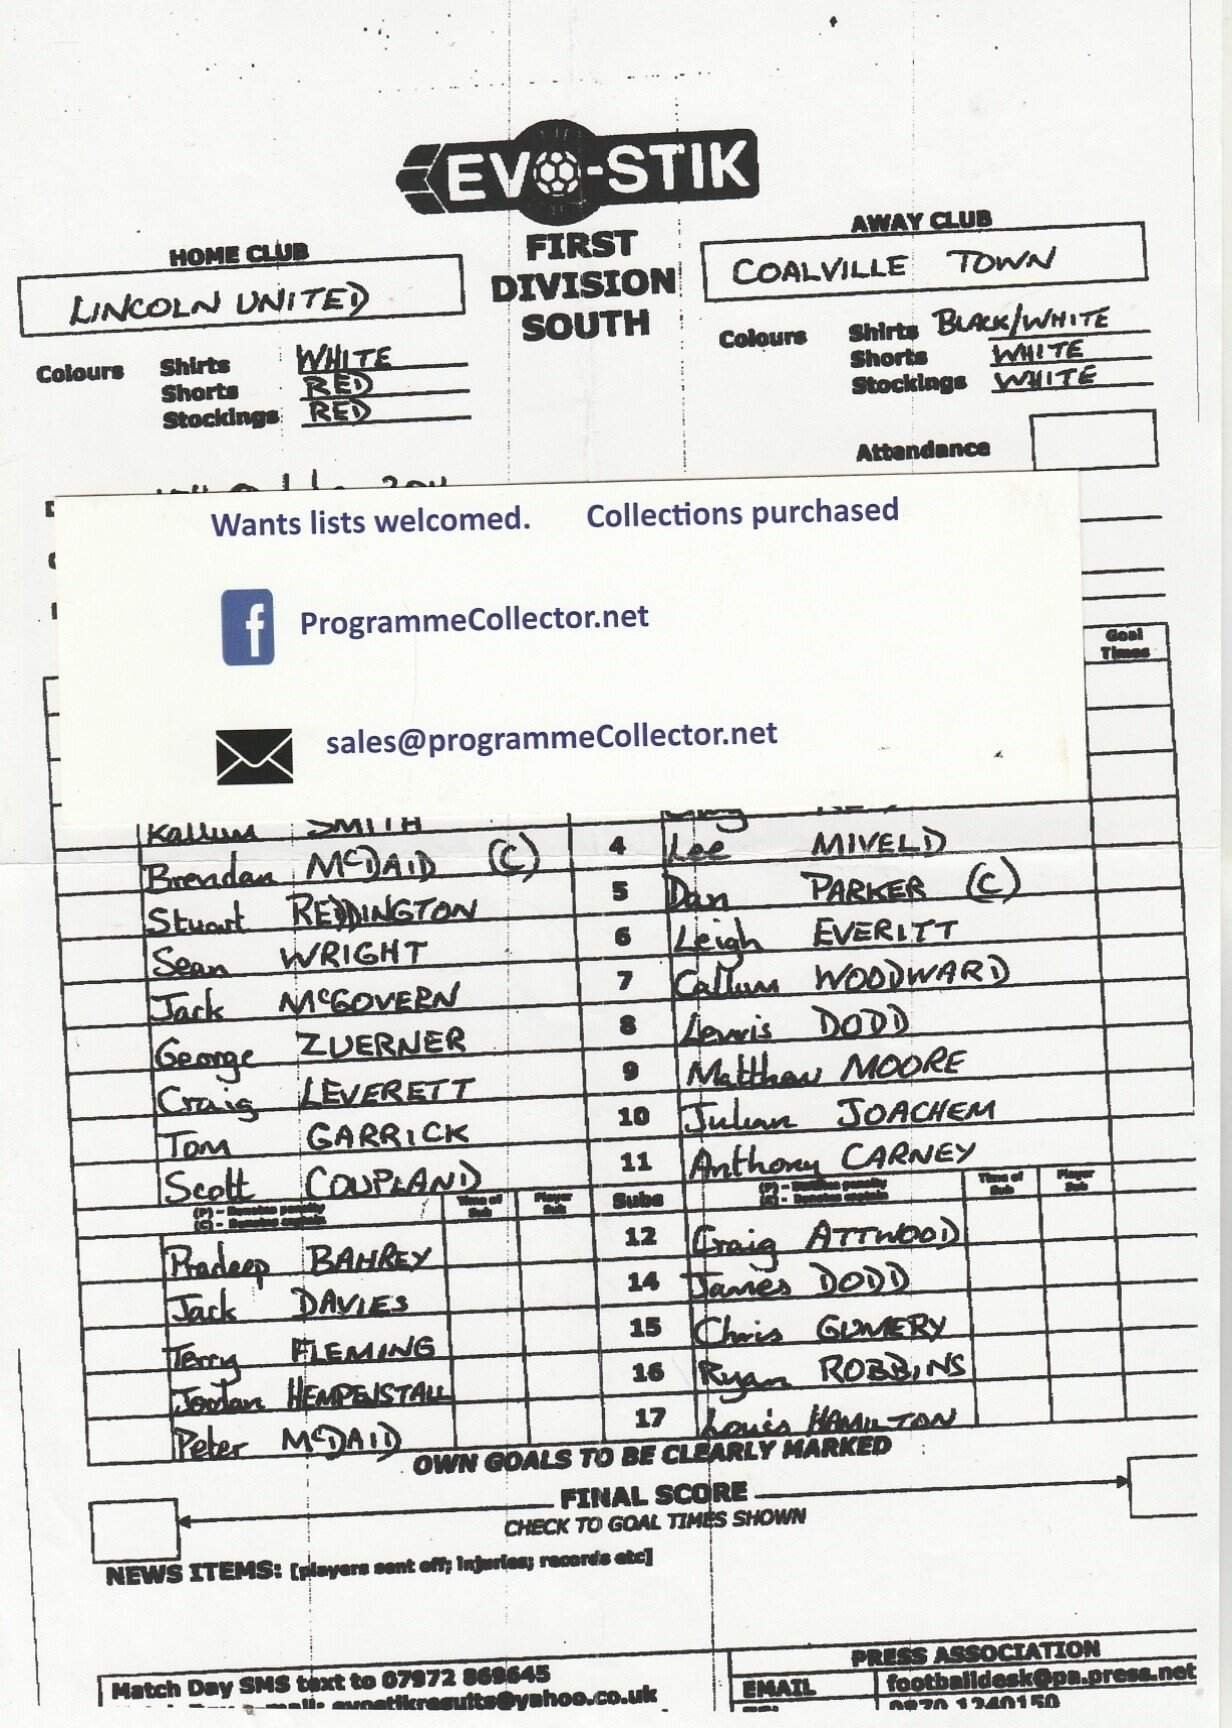 EVO-STIK
FIRST
DIVISION
SOUTH
HOME CLUB
LINCOLN UNITED
AWAY CLUB
COALVILLE TOWN
Colours Shirts WHITE
Shorts RED
Stockings RED
Colours Shirts BLACK/WHITE
Shorts WHITE
Stockings WHITE
Attendance
Wants lists welcomed. Collections purchased
f ProgrammeCollector.net
sales@programmeCollector.net
Goal
Times
Kallum SMITH
Brendan McDAID (C) 4 Lee MIVELD
Stuart REDDINGTON 5 Dan PARKER (C)
Sean WRIGHT 6 Leigh EVERITT
Jack McGOVERN 7 Callum WOODWARD
George ZUERNER 8 Lewis DODD
Craig LEVERETT 9 Matthew MOORE
Tom GARRICK 10 Julian JOACHEM
Scott COUPLAND 11 Anthony CARNEY
(P) - Denotes penalty Time of Player Subs (P) - Denotes penalty Time of Player
(C) - Denotes captain Sub Sub (C) - Denotes captain Sub Sub
Pradeep BAHREY 12 Craig ATTWOOD
Jack DAVIES 14 James DODD
Terry FLEMING 15 Chris GUMERY
Jordan HEMPENSTALL 16 Ryan ROBBINS
Peter McDAID 17 Louis HAMILTON
OWN GOALS TO BE CLEARLY MARKED
FINAL SCORE
CHECK TO GOAL TIMES SHOWN
NEWS ITEMS: [players sent off; injuries; records etc]
Match Day SMS text to 07972 868645
evostikresults@yahoo.co.uk
PRESS ASSOCIATION
EMAIL footballdesk@pa.press.net
0870 1240150